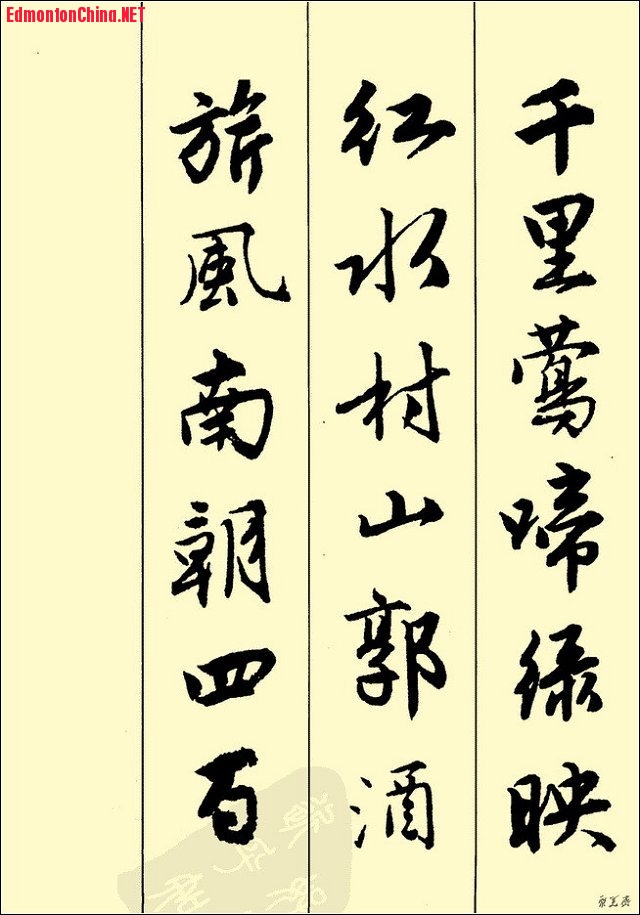 EdmontonChina.NET
千里莺啼绿映
红水村山郭酒
旂風南朝四百